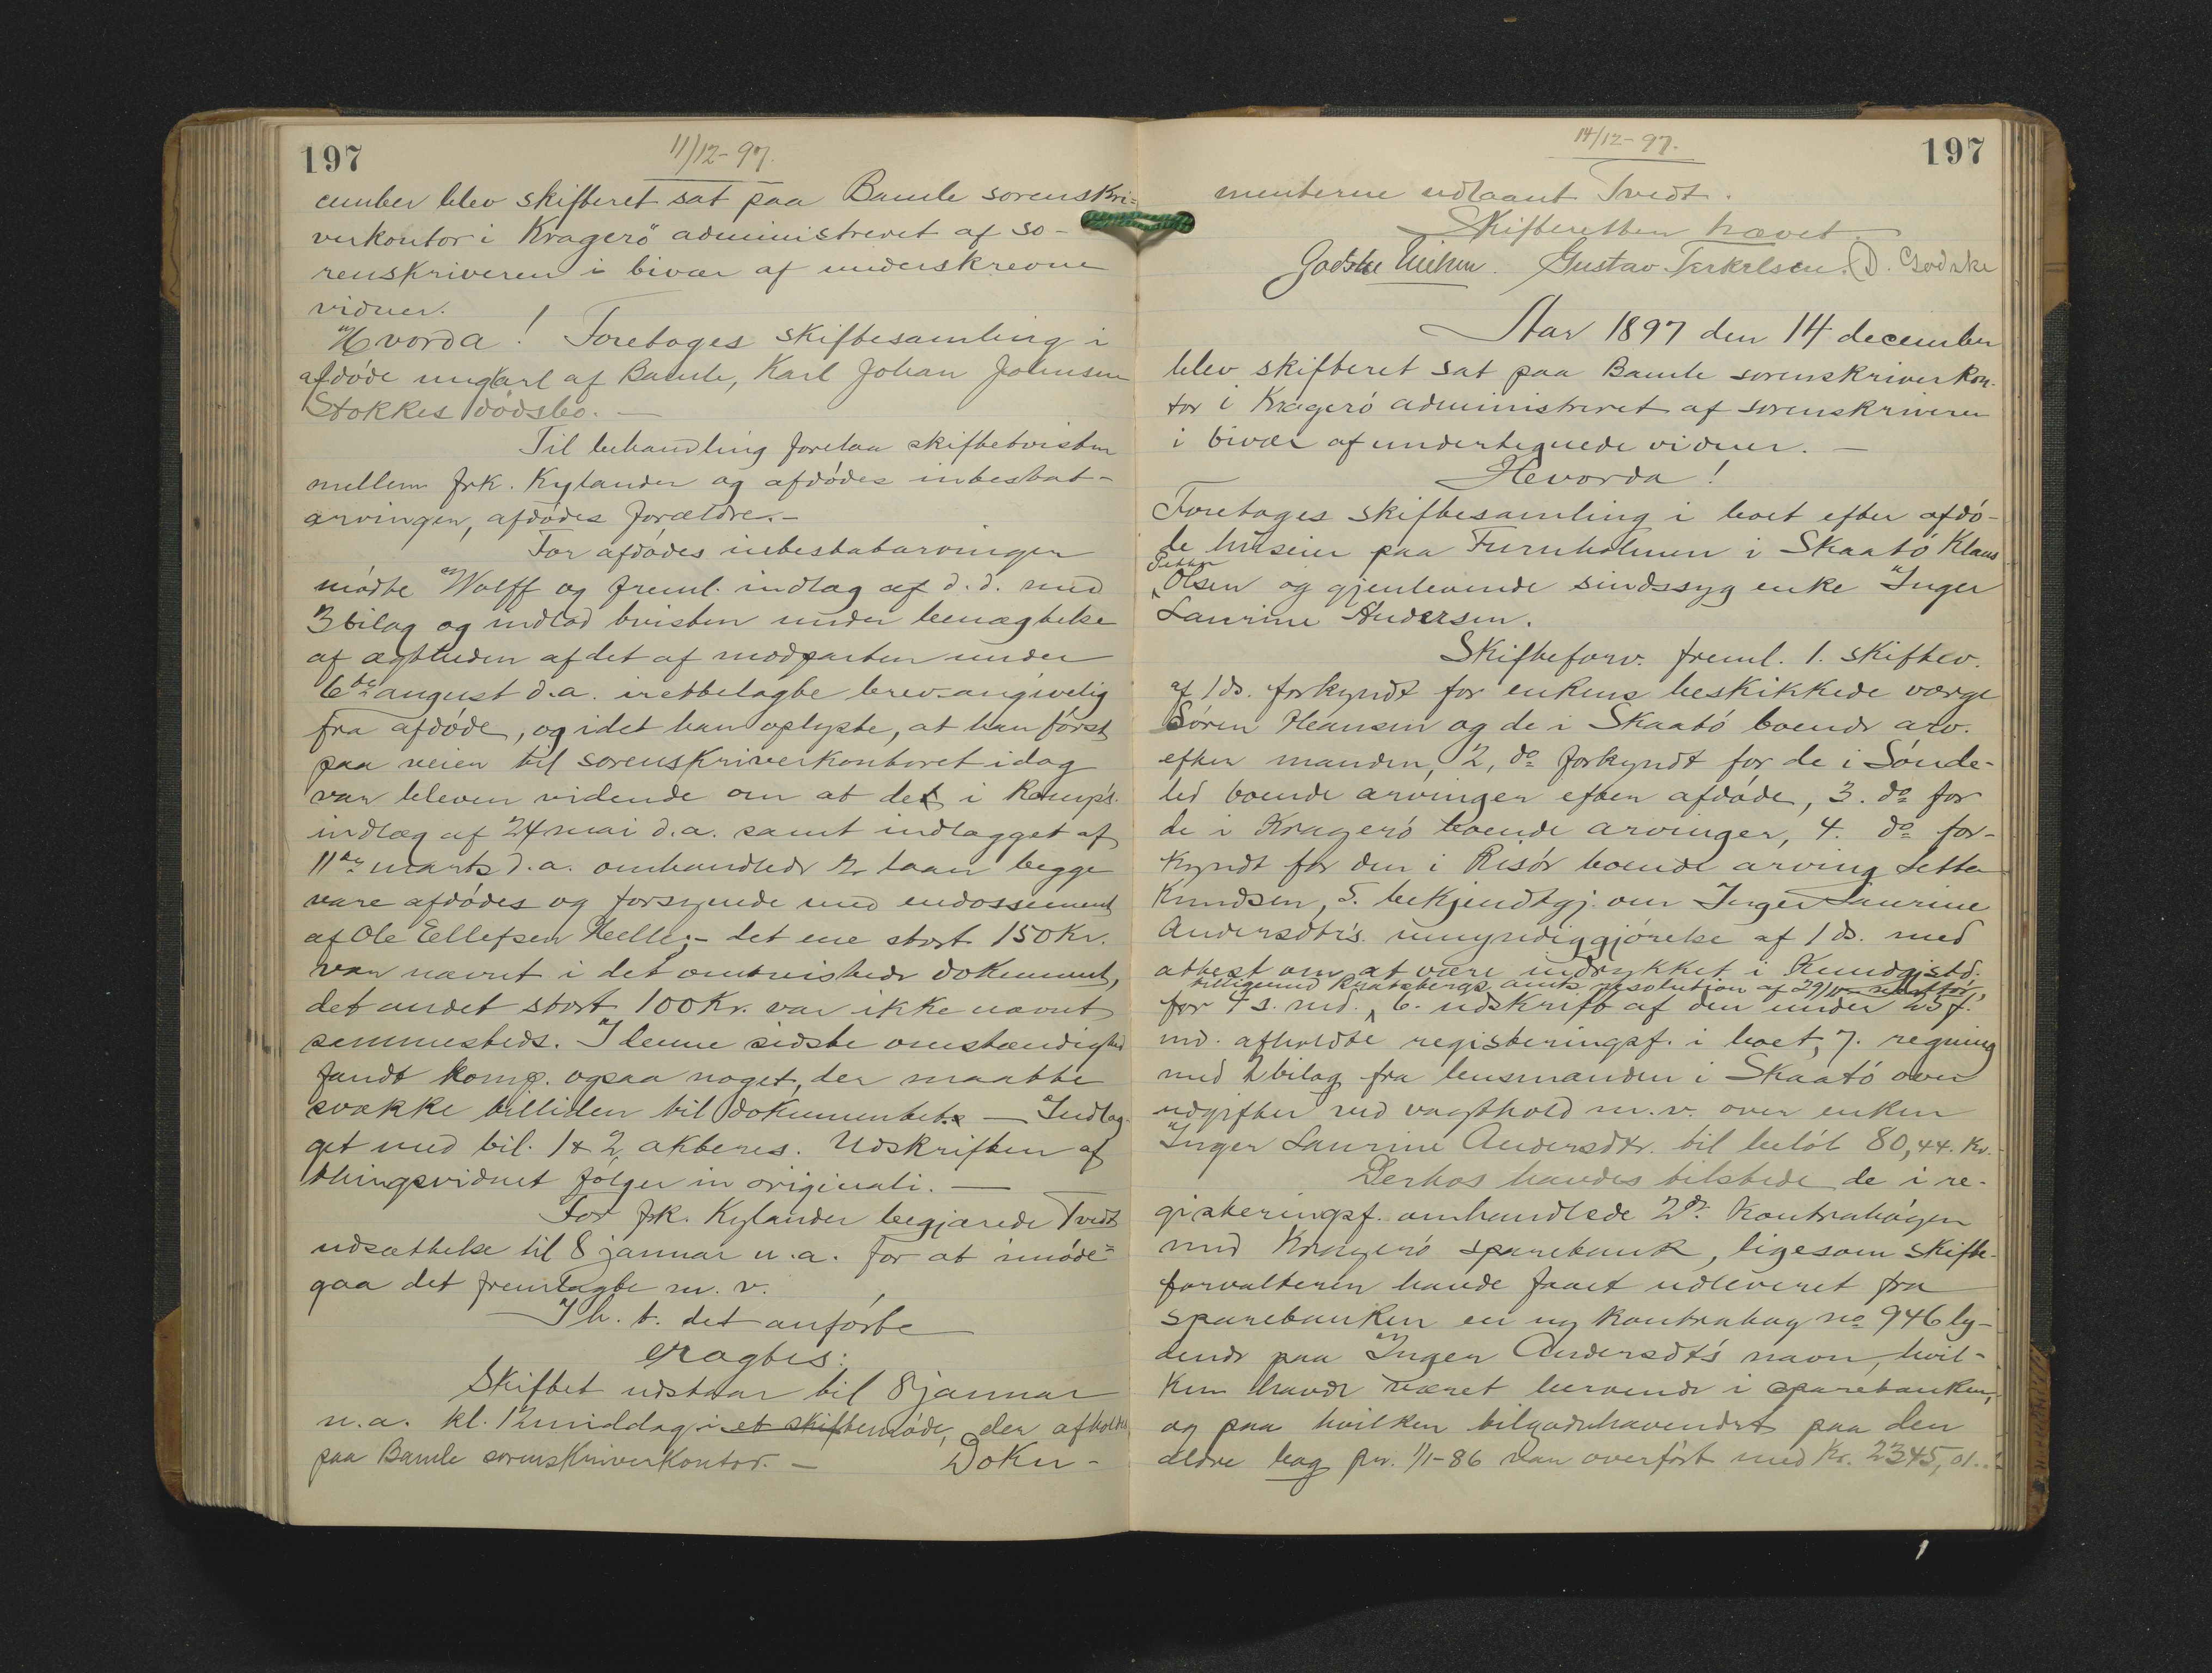 197
11/12-97.
cember blev skifteret sat paa Bamle sorenskri-
verkontor i Kragerö administreret af so-
renskriveren i bivær af underskrevne
vidner.
Hvorda! Foretoges skiftesamling i
afdøde ungkarl af Bamle, Karl Johan Johnsen
Stokkes dødsbo. —
Til behandling forelaa skiftetvisten
mellem frk. Kylander og afdødes intestat-
arvinger, afdødes forældre. -
For afdødes intestatarvinger
mødte Wolff og freml. indlæg af d. d. med
3 bilag og indlod tvisten under benægtelse
af ægtheden af det af modparten under
6te august d.a. irettelagte brev angivelig
fra afdøde, og idet han oplyste, at han først
paa veien til sorenskriverkontoret idag
var bleven vidende om at det i Komp's.
indlæg af 24 mai d.a. samt indlægget af
11te marts d.a. omhandlede 2 laan begge
vare afdødes og forsynede med endossement
af Ole Ellefsen Helle; - det ene stort 150 Kr.
var nævnt i det omtvistede dokument,
det andet stort 100 Kr. var ikke nævnt
sammesteds. I denne sidste omstændighed
fandt Komp. ogsaa noget, der maatte
svække tilliden til dokumentet. — Indlæg-
get med bil. 1 & 2 akteres. Udskriften af
thingsvidnet følger in originali. —
For frk. Kylander begjærede Tvedt
udsættelse til 8 januar n.a. for at imøde-
gaa det fremlagte m. v.
I h. t. det anførte
eragtes:
Skiftet udstaar til 8 januar
n.a. kl. 12 middag i et skiftemøde, der afholdes
paa Bamle sorenskriverkontor. — Doku-
14/12-97.
197
menterne udlaant Tvedt.
Skifteretten hævet.
Godske Nielsen. Gustav Terkelsen. D. Godske
Aar 1897 den 14 december
blev skifteret sat paa Bamle sorenskriverkon-
tor i Kragerö administreret af sorenskriveren
i bivær af undertegnede vidner. —
Hvorda!
Foretoges skiftesamling i boet efter afdø-
de huseier paa Furuholmen i Skaatö Klaus
Petter
Olsen og gjenlevende sindssyg enke Inger
Laurine Andersen.
Skifteforv. freml. 1. skiftev.
af 1 ds. forkyndt for enkens beskikkede værge
Søren Hansen og de i Skaatö boende arv.
efter manden, 2, do forkyndt for de i Sönde-
led boende arvinger efter afdøde, 3. do for
de i Kragerö boende arvinger, 4. do for-
kyndt for den i Risör boende arving Jette
Knudsen, 5. bekjendtgj. om Inger Laurine
Andersdtr's umyndiggjørelse af 1 ds. med
attest om at være indrykket i Kundgj.std.
tilligemed Bratsbergs amts resolution af 29/10
for 4 s. md. 6. udskrift af den under 25 f.
md. afholdte registeringsf. i boet, 7. regning
med 2 bilag fra lensmanden i Skaatö over
udgifter ved vagthold m.v. over enken
Inger Laurine Andersdtr. til beløb 80,44. Kr.
Derhos havdes tilstede de i re-
gisteringsf. omhandlede 2de Kontrabøger
med Kragerö sparebank, ligesom skifte-
forvalteren havde faaet udleveret fra
sparebanken en ny kontrabog no 946 ly-
dende paa Inger Andersdt's navn, hvil-
ken havde været beroende i sparebanken,
og paa hvilken tilgodehavendet paa den
ældre bog pr. 1/1-86 var overført med Kr. 2345,01.